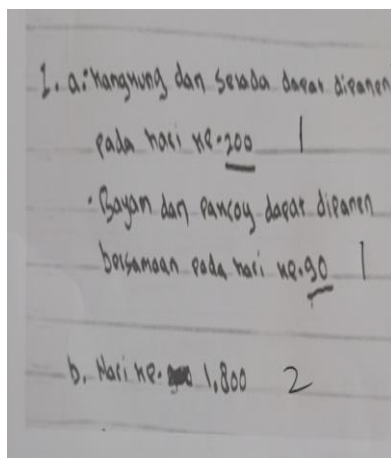 1. a. • Kangkung dan selada dapat dipanen
pada hari ke-200 1
• Bayam dan pancoy dapat dipanen
bersamaan pada hari ke-90 1
b. Hari ke- 1.800 2